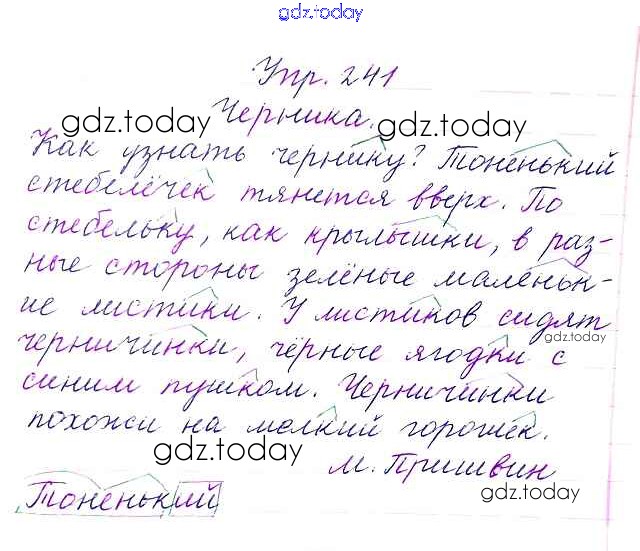 gdz.today
Упр. 241
Черника.
gdz.today
gdz.today
Как узнать чернику? Тоненький
стебелёчек тянется вверх. По
стебельку, как крылышки, в раз-
ные стороны зелёные маленьк-
ие листики. У листиков сидят
gdz.today
черничинки, чёрные ягодки с
синим пушком. Черничинки
похожи на мелкий горошек.
gdz.today
М. Пришвин
gdz.today
Тоненький